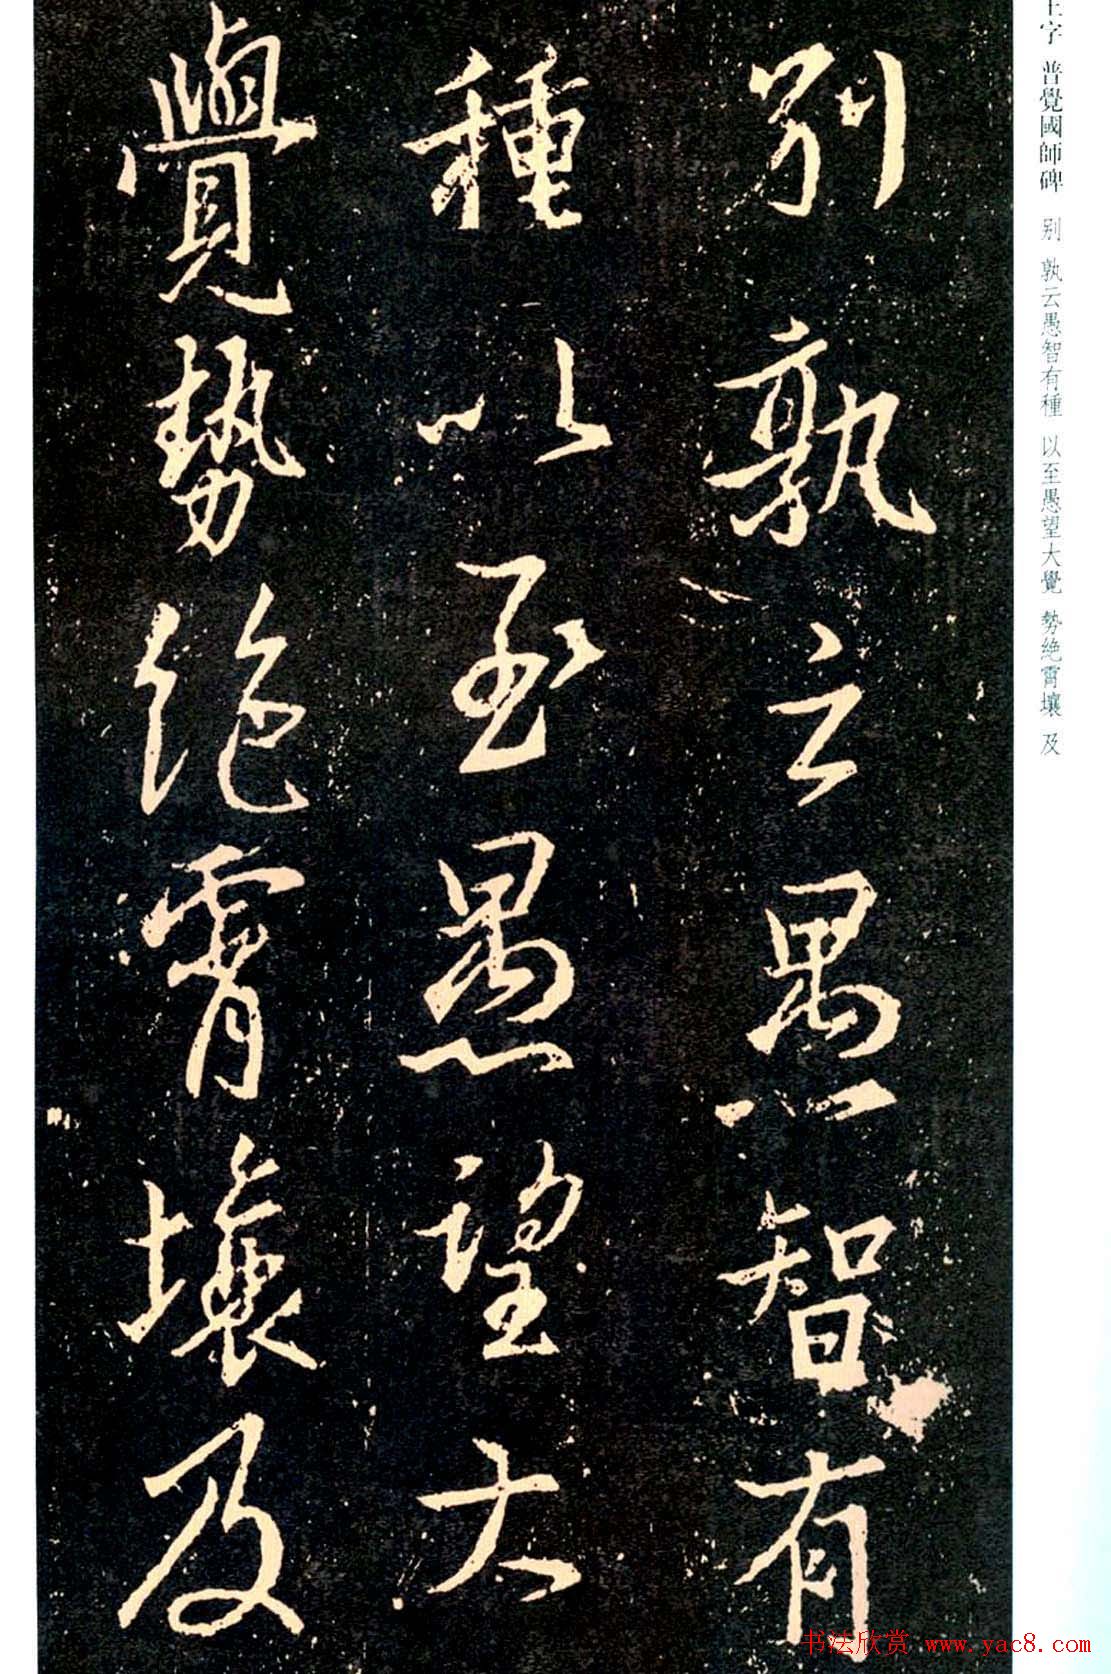 王字 普覺國師碑 別 孰云愚智有種 以至愚望大覺 勢絶霄壤 及
别孰云愚智有
種以至愚望大
覺勢絶霄壤及
书法欣赏 www.yac8.com